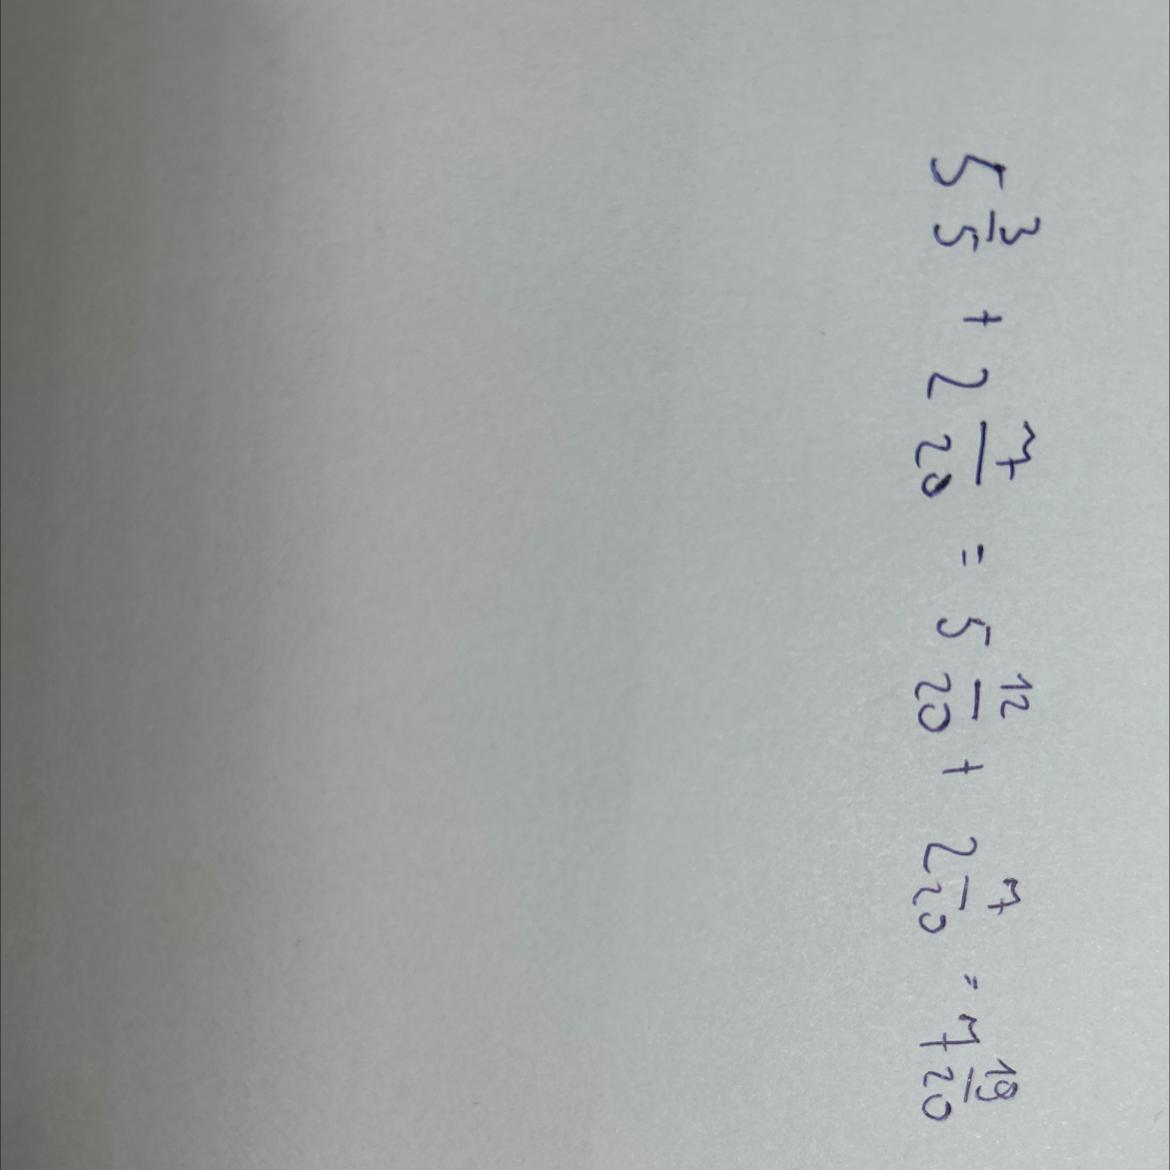 5 3/5 + 2 7/20 = 5 12/20 + 2 7/20 = 7 19/20